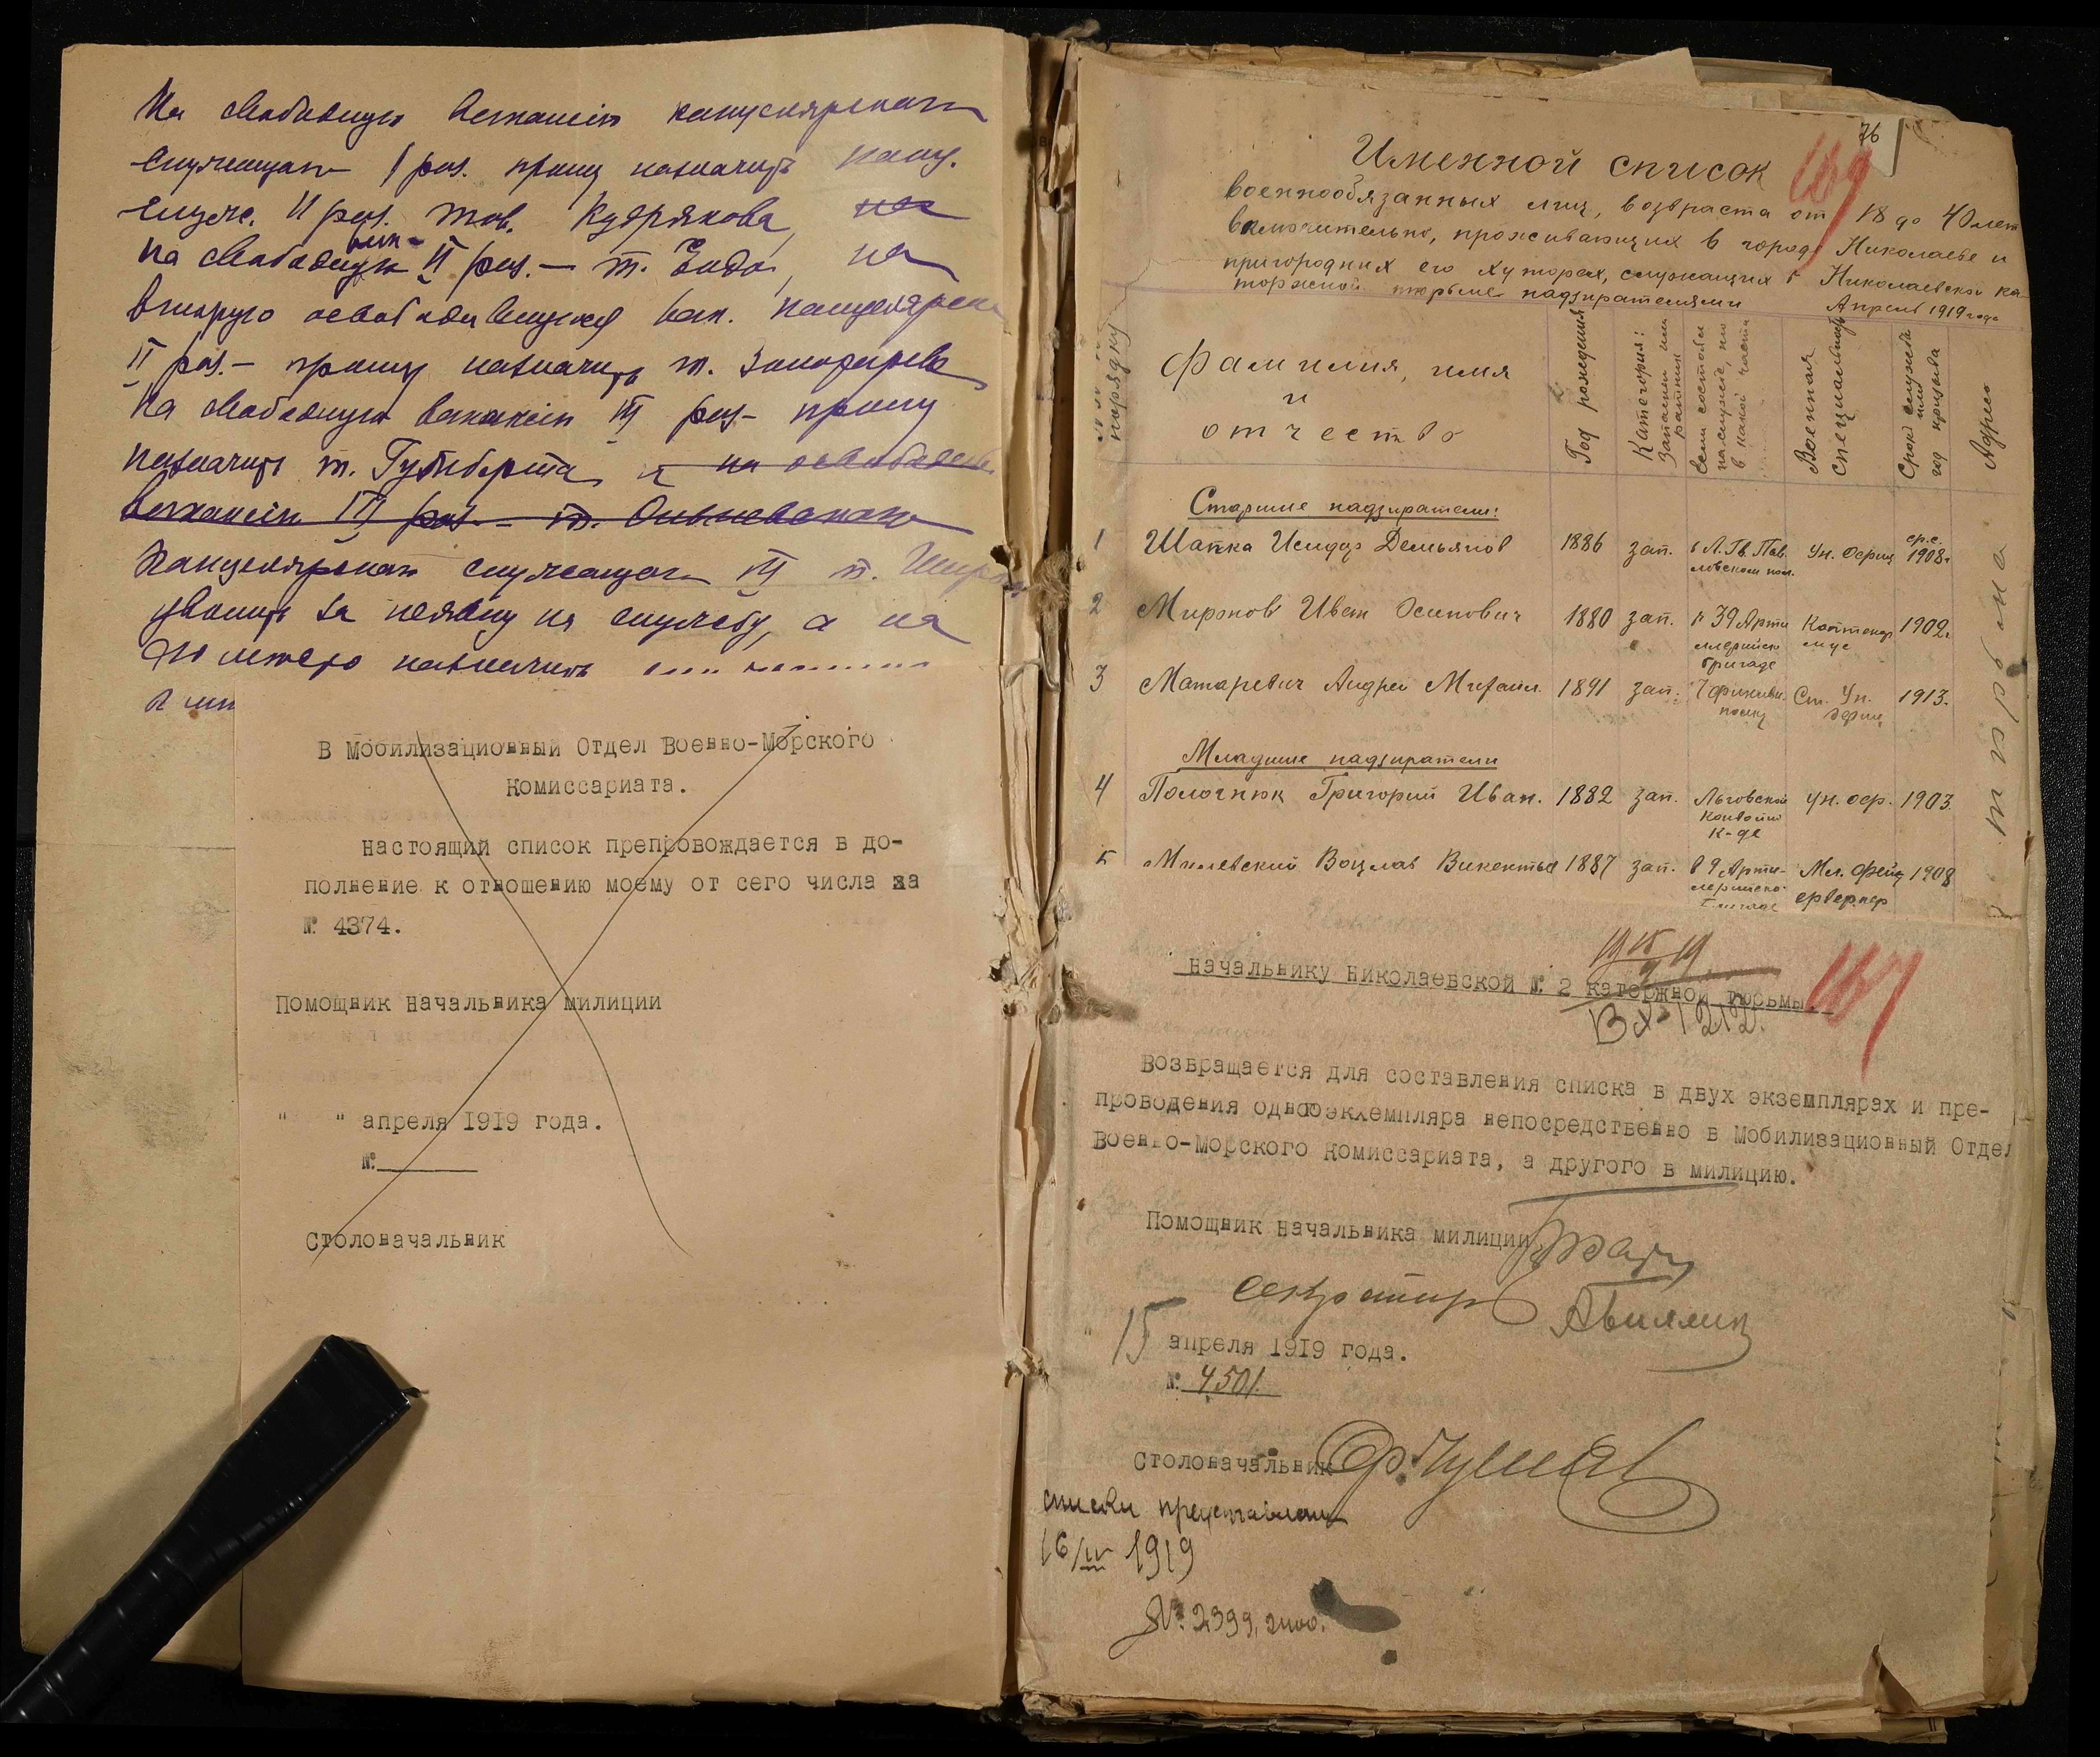 На свободную вакансію канцелярскаго
служащаго I раз. прошу назначить канц.
служ. II раз. тов. Кудрякова, на
на свободную вак. II раз. — т. на
вторую освободившуюся вак. канцелярск
II раз. — прошу назначить т.
На свободную вакансію III раз. прошу
назначить т. Гутнберта и на освободив
вакансію III раз. — т.
Канцелярскаго служащаго III т.
уволить за неявку на службу, а на
его место назначить
В Мобилизационный Отдел Военно-Морского
Комиссариата.
Настоящий список препровождается в до-
полнение к отношению моему от сего числа за
№ 4374.
Помощник Начальника милиции
" " апреля 1919 года.
№
Столоначальник
76
Именной список
169
военнообязанных лиц, возраста от 18 до 40 лет
включительно, проживающих в городе Николаеве и
пригородних его хуторах, служащих в Николаевской ка-
торжной тюрьме надзирателями
Апрель 1919 года
№№ по порядку
Фамилия, имя
и
отчество
Год рождения
Категория: Запасный или ратник
Если состояли на службе, то в какой части
Военная специальность
Срок службы или год призыва
Адрес
Старшие надзиратели:
1 Шапка Исидор Демьянов 1886 зап. в Л. Гв. Пав. ловском пол. Ун. Офиц. ср. с. 1908 г.
2 Миронов Иван Осипович 1880 зап. в 39 Арти ллерийск бригаде Каптенар мус 1902 г.
3 Матаревич Андрей Михайл. 1891 зап. полку Ст. Ун. Офиц 1913.
Младшие надзиратели
4 Полочнюк Григорий Иван. 1882 зап. Льговской Конвойн К-де Ун. оф. 1903.
5 Милевский Воцлав Викентьев 1887 зап. в 9 Арти- лерийско- бригаде Мл. Фейерверкер 1908
тюрьма
19 15/IV 19
Начальнику Николаевской № 2 каторжной тюрьмы.
167
Вх 1212.
Возвращается для составления списка в двух экземплярах и пре-
проводения одногоэкхемпляра непосредственно в Мобилизационный Отдел
Военно-Морского Комиссариата, а другого в милицию.
Помощник Начальника милиции
Секретарь
15 апреля 1919 года.
№ 4501.
Столоначальник
списки представлены
16/IV 1919
№ 2399, 2400.